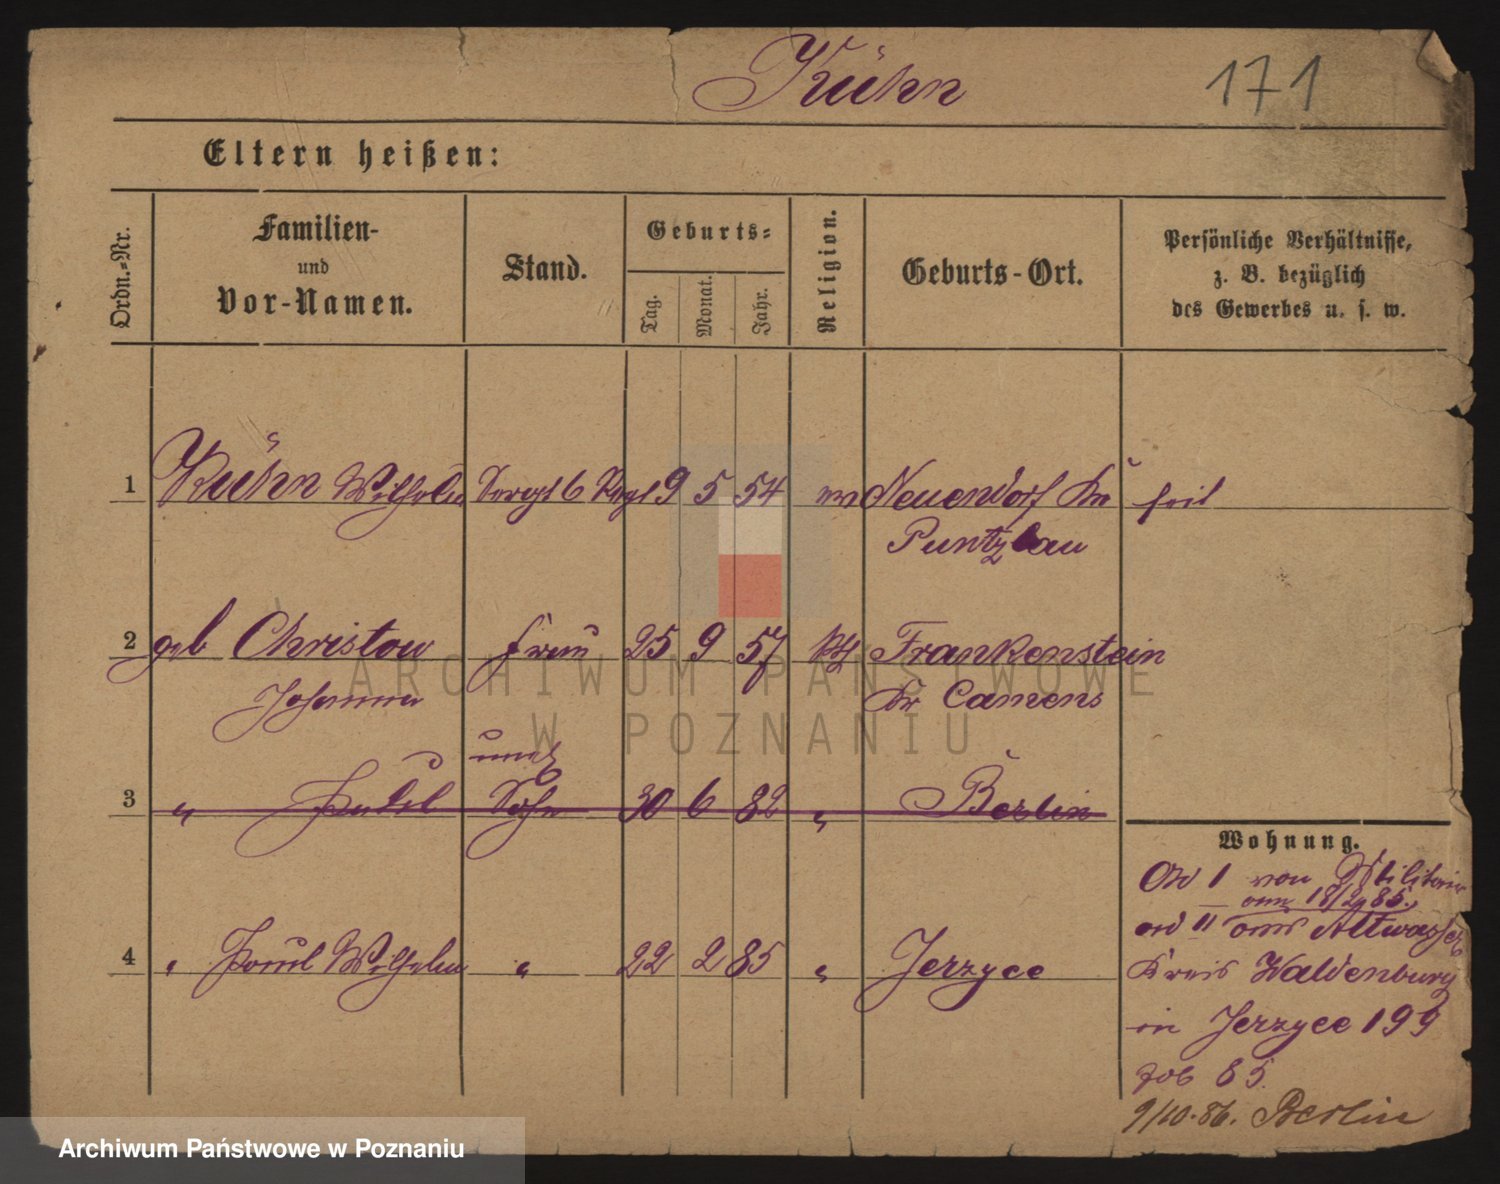 Kühn
171
Eltern heißen:
Ordn.-Nr.
Familien-
und
Vor-Namen.
Stand.
Geburts-
Tag.
Monat.
Jahr.
Religion.
Geburts-Ort.
Persönliche Verhältnisse,
z. B. bezüglich
des Gewerbes u. s. w.
1 Kühn Wilhelm Sergt 6 9 5 54 ev Neuendorf Kr
Puntzlau
2 geb Christow Frau 25 9 57 kth Frankenstein
Johanna Kr Camens
unehl
3 " Sohn 30 6 82 " Berlin
4 " Paul Wilhelm " 22 2 85 " Jerzyce
Wohnung.
I von Militair
18/2 85.
II aus Altwasser
Kreis Waldenburg
in Jerzyce 199
85.
9/10.86. Berlin
ARCHIWUM PAŃSTWOWE
W POZNANIU
Archiwum Państwowe w Poznaniu